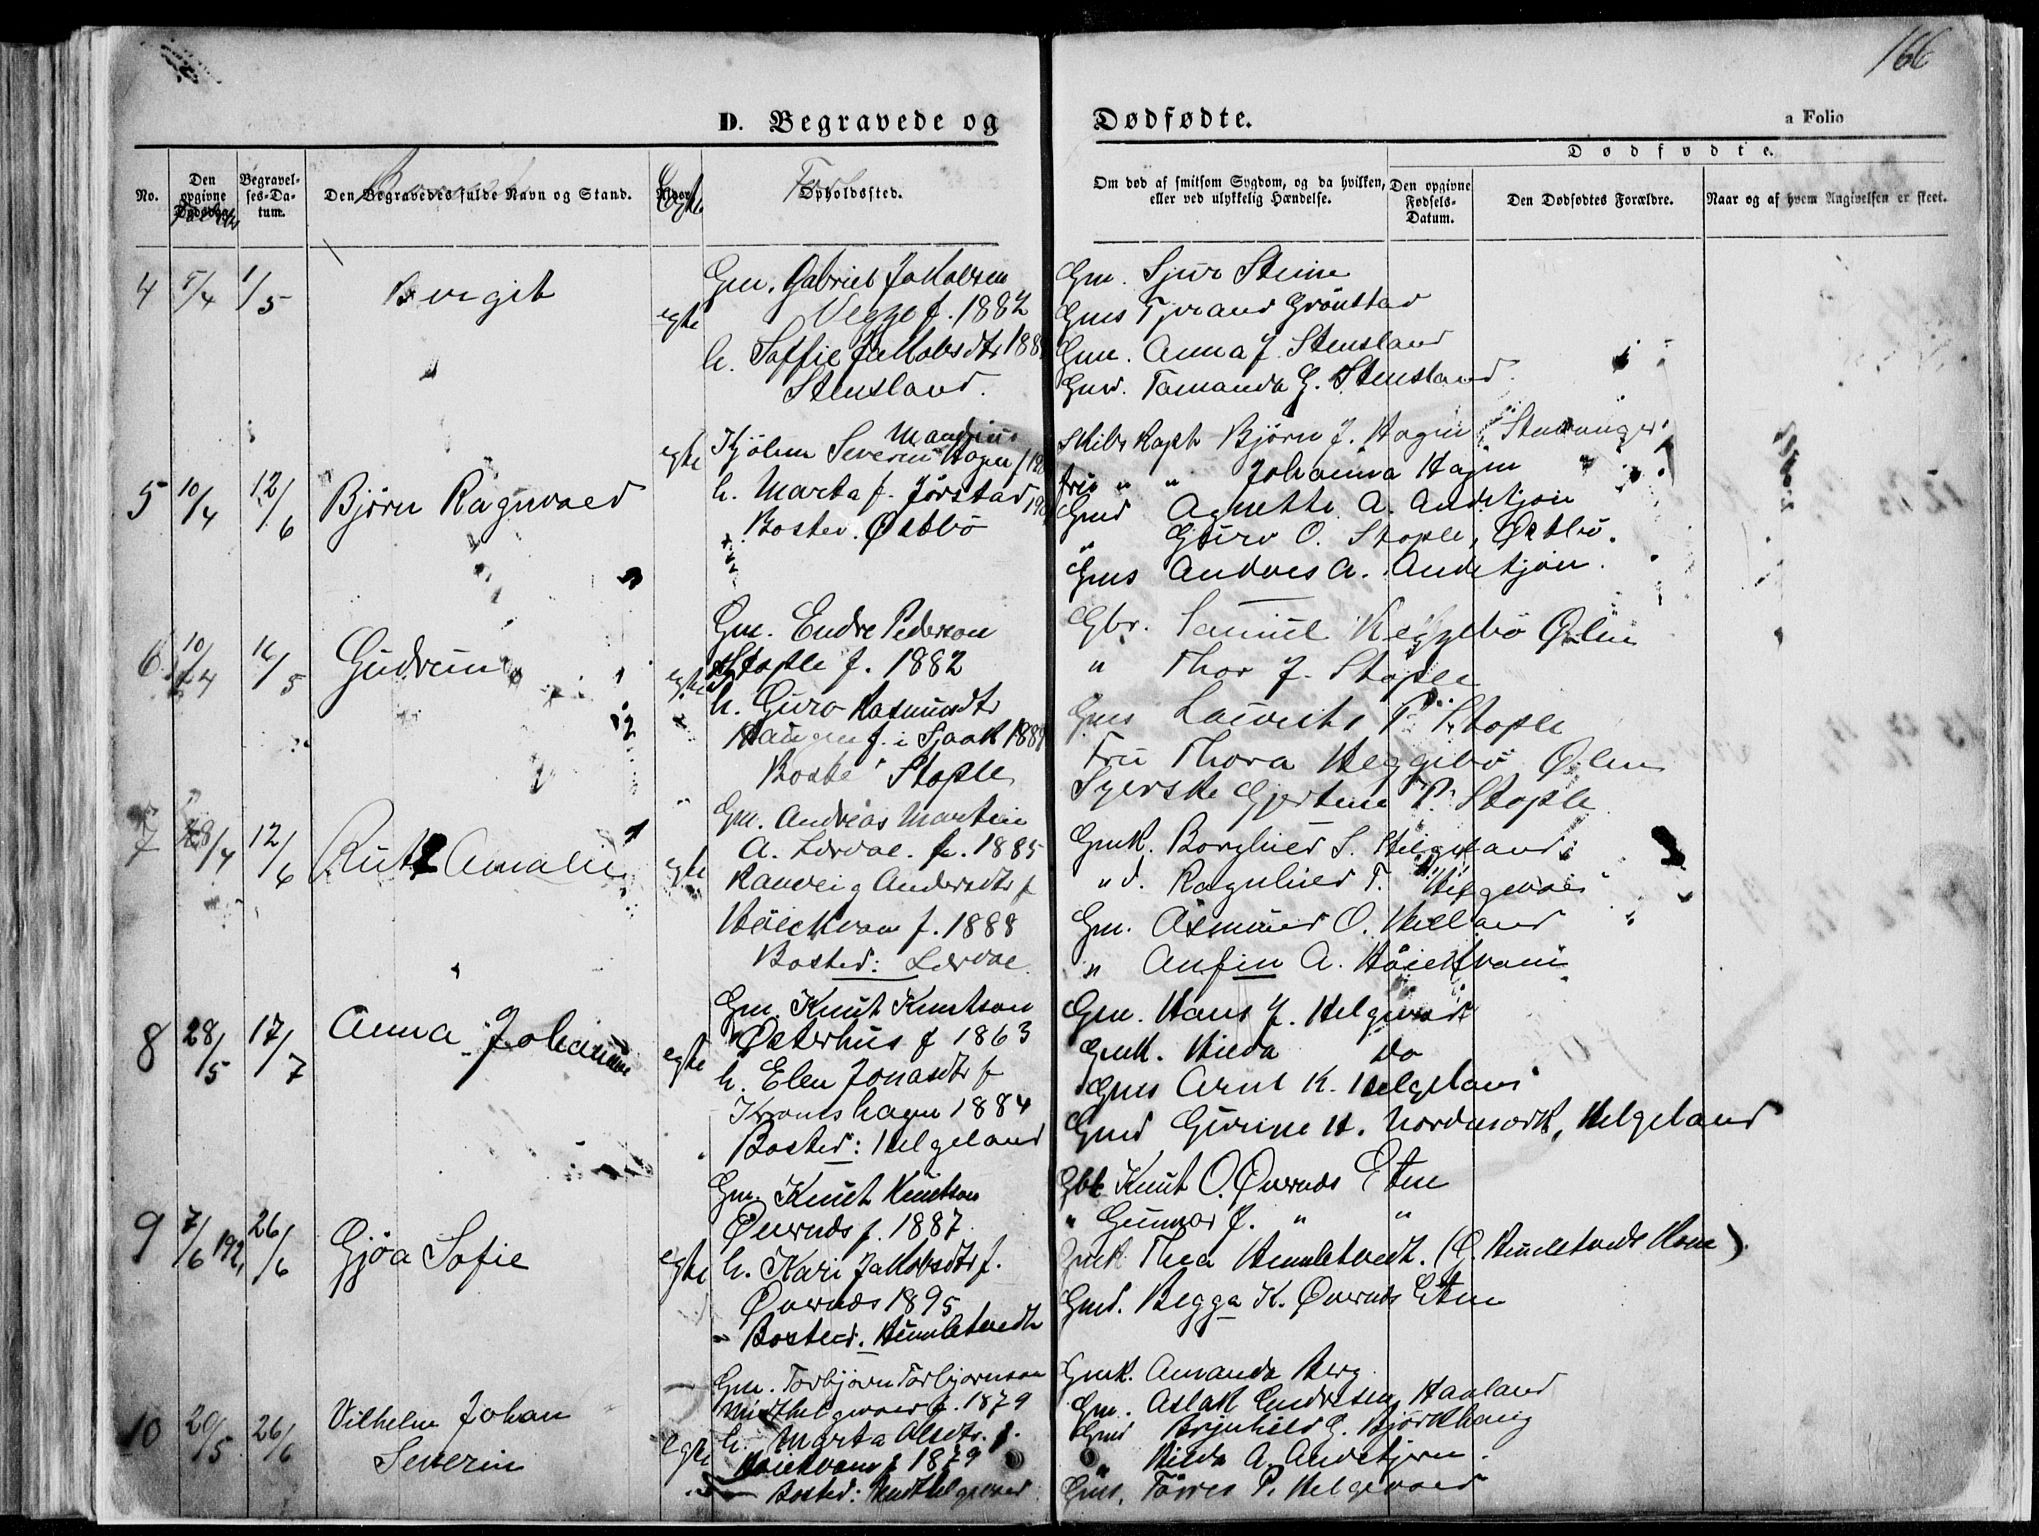 166
D. Begravede og Dødfødte.
a Folio
No.
Den opgivne Dødsda-
Begravel-
ses-Da-
tum.
Den Begravedes fulde Navn og Stand.
Opholdssted.
Om død af smitsom Sygdom, og da hvilken,
eller ved ulykkelig Hændelse.
Dødfødte.
Den opgivne
Fødsels-
Datum.
Den Dødfødtes Forældre.
Naar og af hvem Angivelsen er skeet.
4 5/4 1/5 Bergit egte
Gm. Gabriel Jakobsen
Vegge f. 1882
h. Soffie Jakobsdtr
Stensland.
Gm. Sjur Steine
Gms Tjerand Grønstad
Gm. Anna J. Stensland
Gmd. Tomanda G. Stensland.
5 10/4 12/6 Bjørn Ragnvald egte
Kjølem Severin Hagen
h. Marta f. Jørstad
Bosted. Østbø
Skibs Kapt. Bjørn J. Hagen Stavanger
fru " " Johanna Hagen
Gmd Agnethe A. Andetjøn
" Guro O. Stople, Østbø.
Gms Andreas A. Andetjøn.
6 10/4 16/5 Gudrun egte
Gm. Endre Pederson
Stople f. 1882
h. Guro Rasmusdtr
Haugen f. i Sjaak 188
Boste Stople
Gbr. Samuel Heggebø Ølen
" Thor J. Stople
Gms Laurits P. Stople
Fru Thora Heggebø Ølen
Syerske Gjertine P. Stople
7 28/4 12/6 Rut Amalie egte
Gm. Andreas Martin
A. Lervae. f. 1885
Ranveig Andersdtr f
Høiekvam f. 1888
Bosted: Lervae
Gmk. Borghild S. Helgeland
" d. Ragnhild T. Helgevold
Gm. Asmund O. Helland
" Anfin A. Høiekvam
8 28/5 17/7 Anna Johanne egte
Gm. Knut Knutson
Østerhus f 1863
h. Elen Jonasdtr f
Kronshagen 1884
Bosted: Helgeland
Gm. Hans J. Helgevold
Gmk. Hilda Do
Gms Arne K. Helgeland
Gmd Gurine H. Nordmork, Helgeland
9 7/6 192 26/6 Gjøa Sofie egte
Gm. Knut Knutson
Øvernes f. 1887
h. Kari Jakobsdtr f.
Øvernes 1895
Bosted. Humletvedt
Gbr Knut O. Øvernes Etne
" Gunnar J. " "
Gmk. Thea Humletvedt. (G. Humletvedts Kone)
Gmd. Begga K. Øvernes Etne
10 20/5 26/6 Vilhelm Johan
Severin egte
Gm. Torbjørn Torbjørnson
Midthelgevold f. 1879
h. Marta Olsdtr. f.
Høiekvam f 1879
Bosted: Midthelgevold
Gmk. Amanda Berg
Gm. Aslak Endresen, Haaland
Gmd Brynhild G. Bjørkhaug
" Hilda A. Andetjern.
Gms. Tørres P. Helgevold